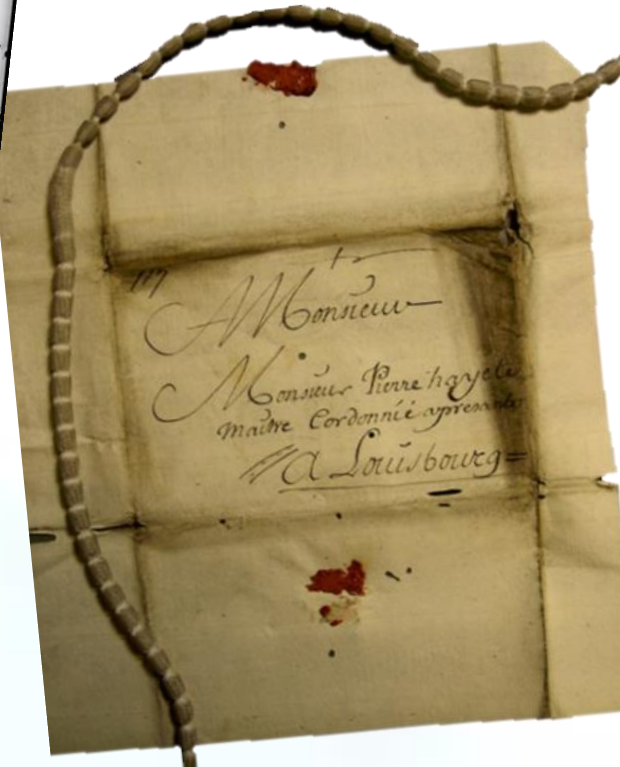 A Monsieur
Monsieur Pierre hayet
Maitre Cordonnié apresant
a Louisbourg =